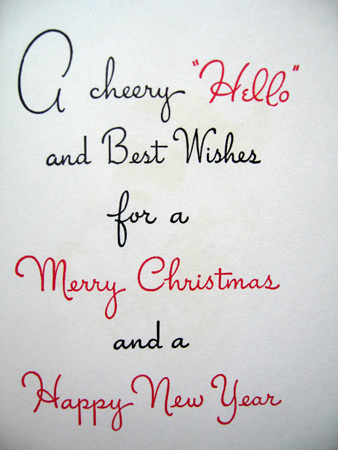 A cheery "Hello"
and Best Wishes
for a
Merry Christmas
and a
Happy New Year